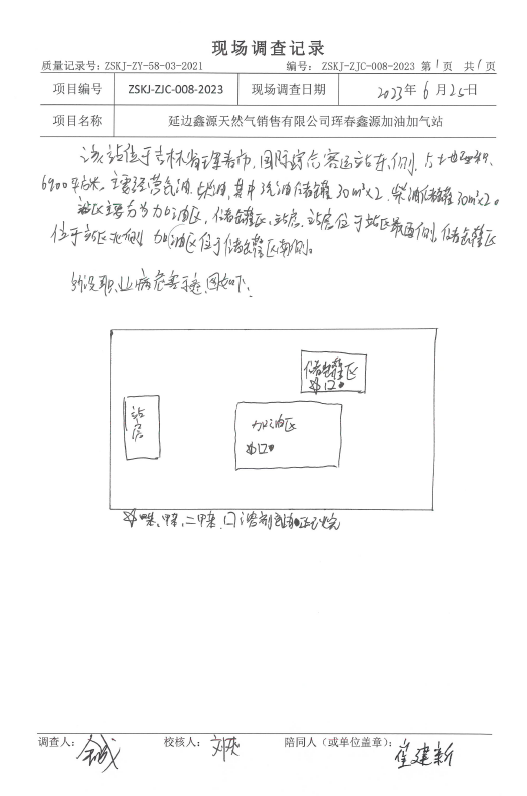 现场调查记录
质量记录号: ZSKJ-ZY-58-03-2021 编号: ZSKJ-ZJC-008-2023 第1页 共1页
项目编号 ZSKJ-ZJC-008-2023 现场调查日期 2023年6月25日
项目名称 延边鑫源天然气销售有限公司珲春鑫源加油加气站
该站位于吉林省珲春市,国际综合客运站东侧,占地面积
6900平方米。主要经营汽油、柴油,其中汽油储罐30m³×2,柴油储罐30m³×2。
站区主要分为加油区、储罐区、站房。站房位于站区最西侧,储罐区
位于站区北侧,加油区位于储罐区南侧。
职业病危害 图如下:
储罐区
站房
加油区
苯、甲苯、二甲苯、口溶剂汽油 正己烷
调查人: 校核人: 陪同人(或单位盖章): 崔建新